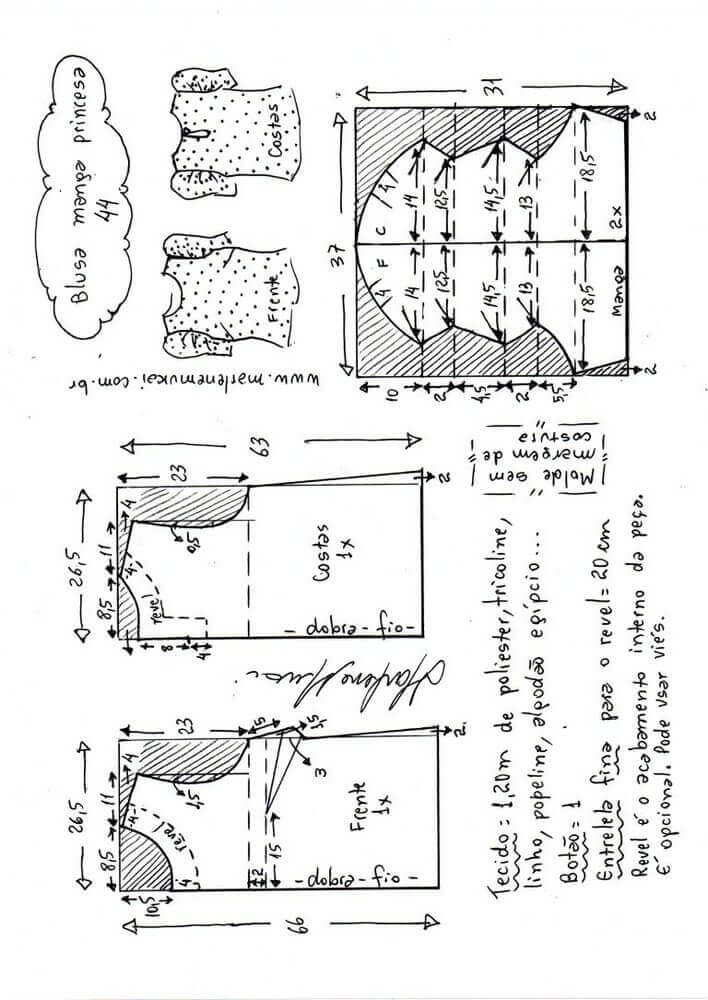 Blusa manga princesa
44
Costas
Frente
www.marlenemukai.com.br
31
37
C
F
4
4
14
14
12,5
12,5
14,5
14,5
13
13
18,5
18,5
Manga
2x
2
2
10
2
4,5
2
5,5
63
23
26,5
11
8,5
4
4
0,5
revel
8
4
Costas
1x
dobra-fio
2
Molde sem
margem de
costura
66
23
26,5
11
8,5
10,5
4
4
4
1,5
revel
5
1,5
3
15
2
Frente
1x
dobra-fio
2
Tecido = 1,20m de poliester, tricoline,
linho, popeline, algodão egípcio...
Botão = 1
Entretela fina para o revel = 20cm
Revel é o acabamento interno da peça.
É opcional. Pode usar viés.